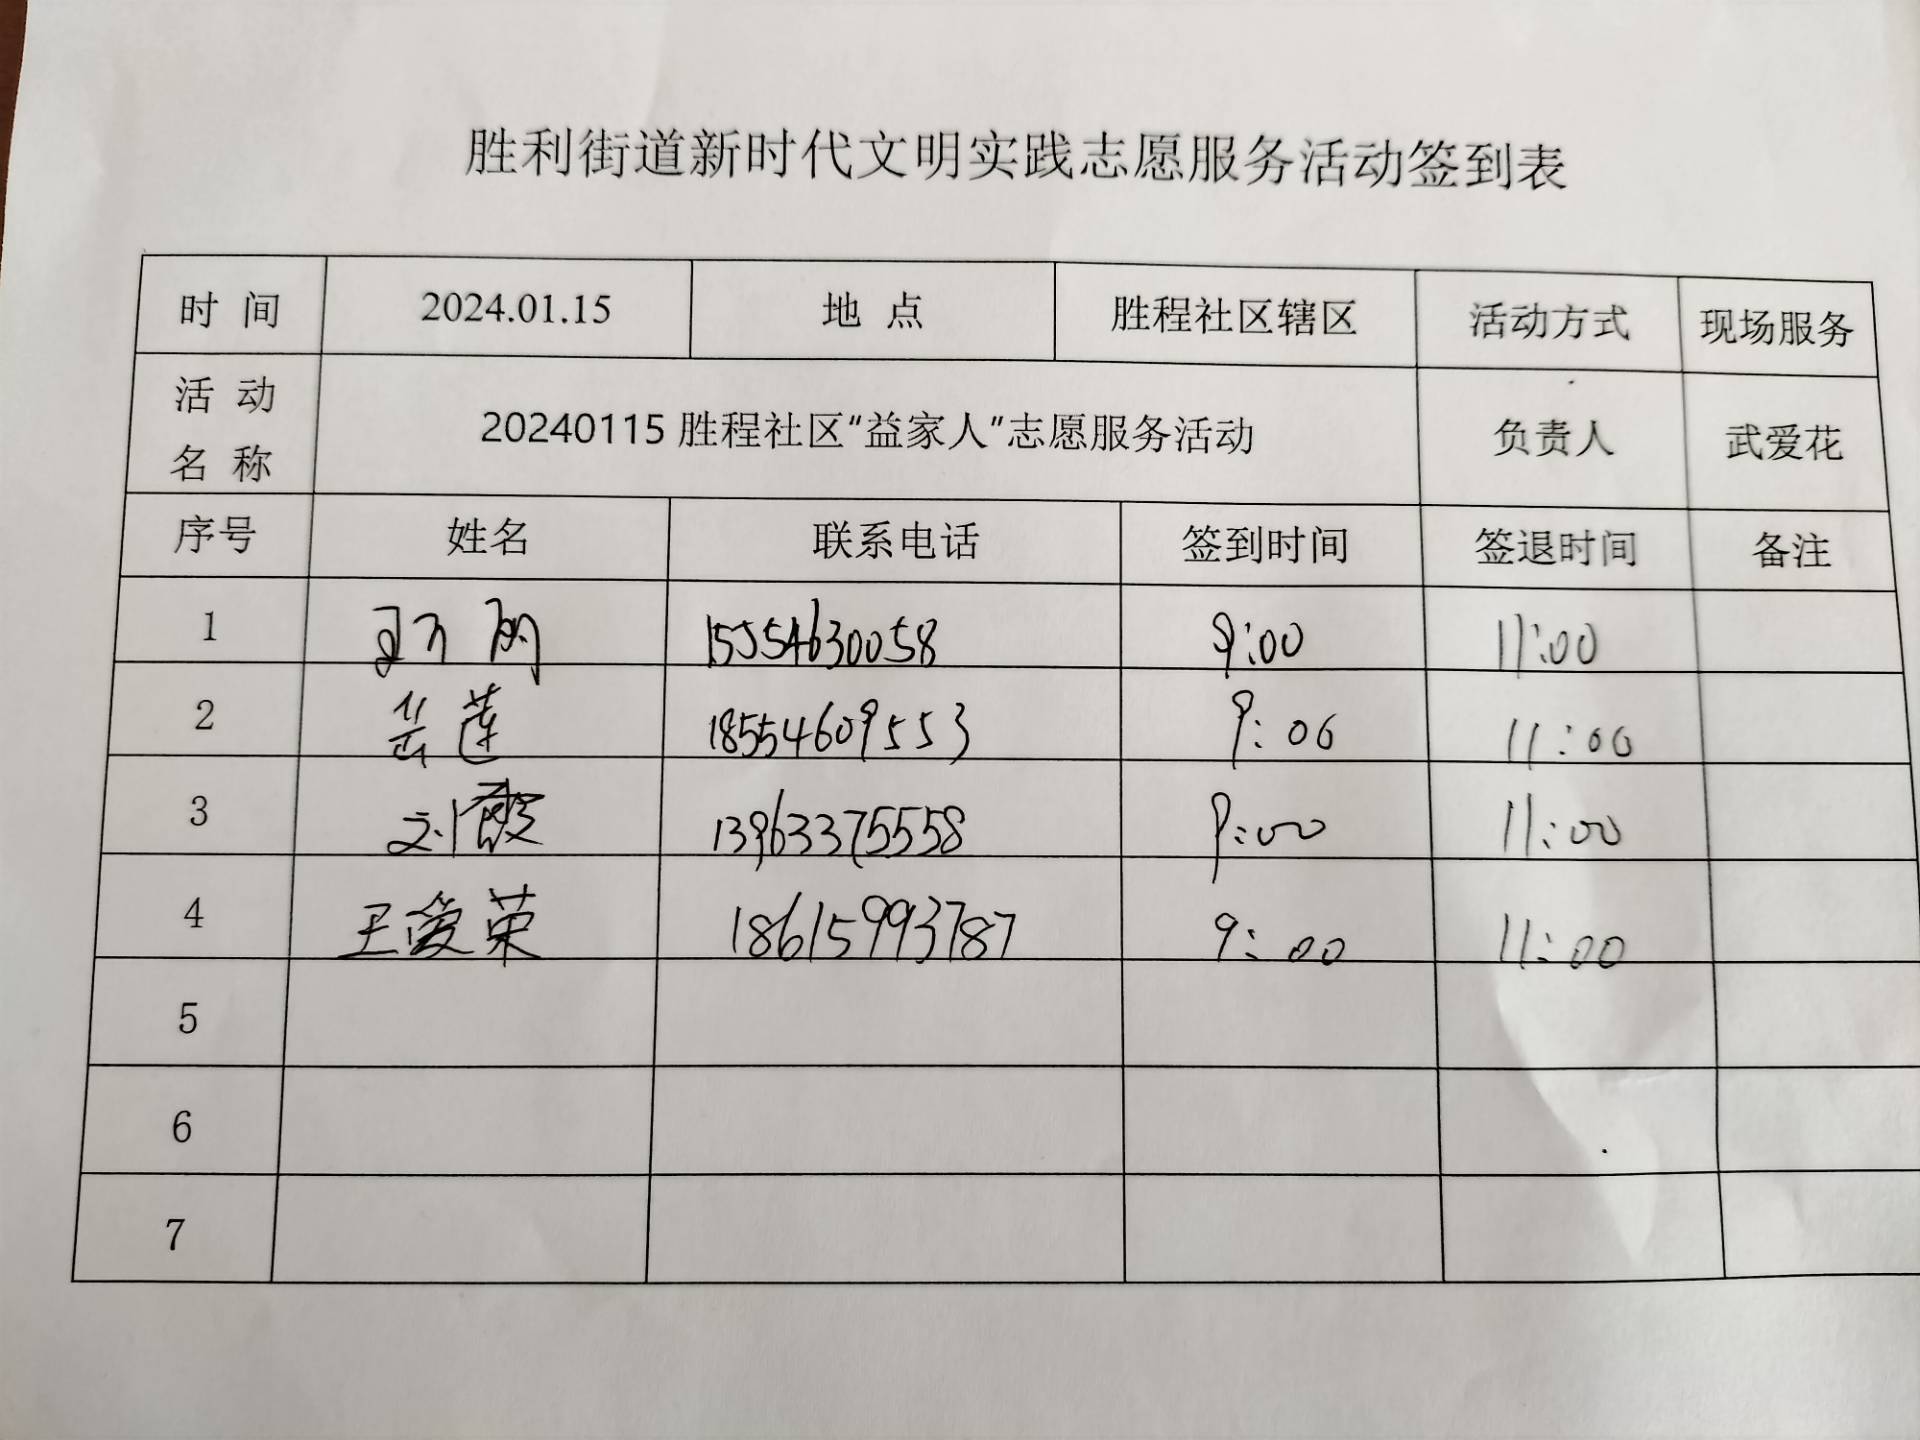 胜利街道新时代文明实践志愿服务活动签到表
时 间 2024.01.15 地 点 胜程社区辖区 活动方式 现场服务
活 动
名 称 20240115胜程社区“益家人”志愿服务活动 负责人 武爱花
序号 姓名 联系电话 签到时间 签退时间 备注
1 15554630058 9:00 11:00
2 岳莲 18554609553 9:00 11:00
3 刘霞 13963375558 9:00 11:00
4 王爱荣 18615993787 9:00 11:00
5
6
7